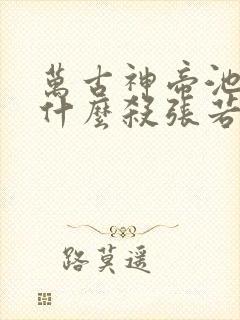 萬古神帝池
什麼殺張若
路莫遥